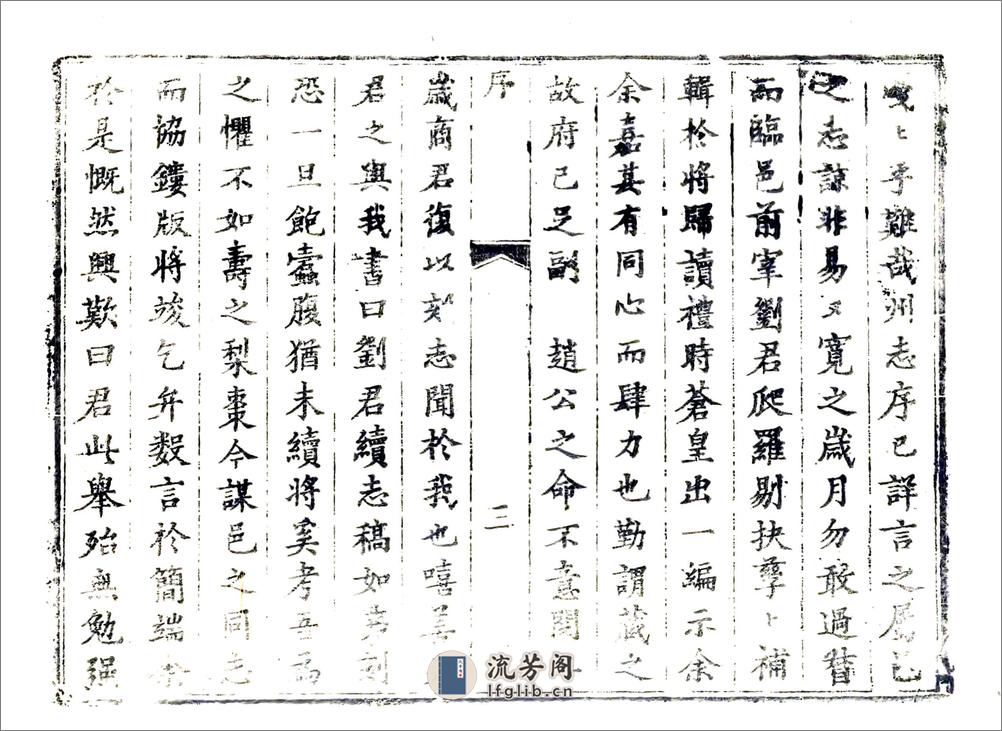 戛戛乎難哉州志序已詳言之屬邑
之志諒非易易寬之歲月勿敢過督
而臨邑前宰劉君爬羅剔抉孳孳補
輯於將歸讀禮時蒼皇出一編示余
余嘉其有同心而肆力也勤謂藏之
故府已足副 趙公之命不意閱
序
三
歲商君復以刻志聞於我也嘻善
君之與我書曰劉君續志稿如弗刻
恐一旦飽蠹腹猶未續將奚考吾為
之懼不如壽之梨棗今謀邑之同志
而協鏤版將竣乞弁數言於簡端余
於是慨然興歎曰君此舉殆無勉强
流芳阁
lfglib.cn